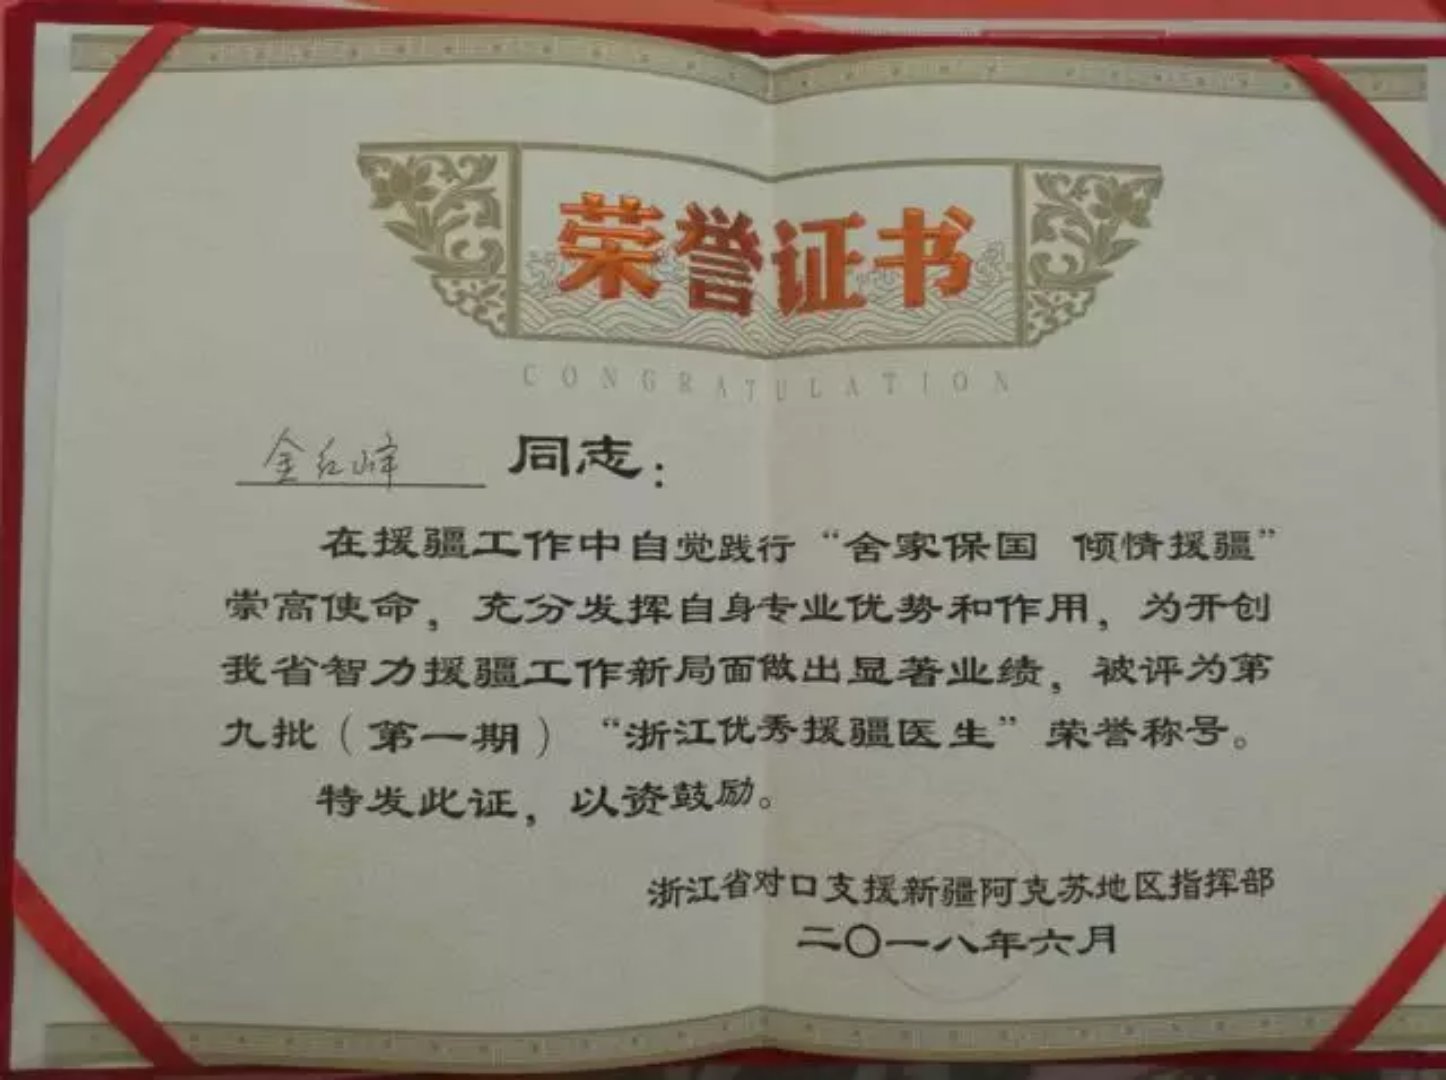 荣誉证书
CONGRATULATION
金红峰 同志：
在援疆工作中自觉践行“舍家保国 倾情援疆”
崇高使命，充分发挥自身专业优势和作用，为开创
我省智力援疆工作新局面做出显著业绩，被评为第
九批（第一期）“浙江优秀援疆医生”荣誉称号。
特发此证，以资鼓励。
浙江省对口支援新疆阿克苏地区指挥部
二〇一八年六月